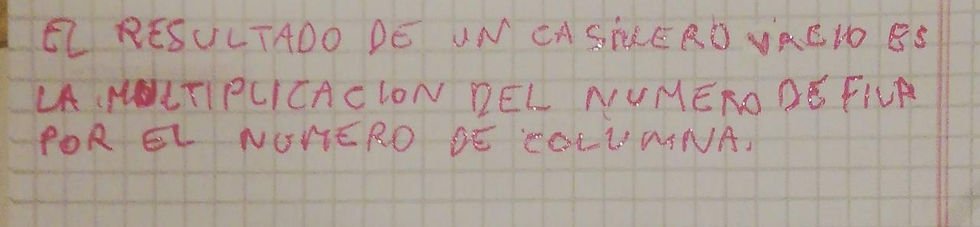 EL RESULTADO DE UN CASILLERO VACIO ES
LA MULTIPLICACION DEL NUMERO DE FILA
POR EL NUMERO DE COLUMNA.